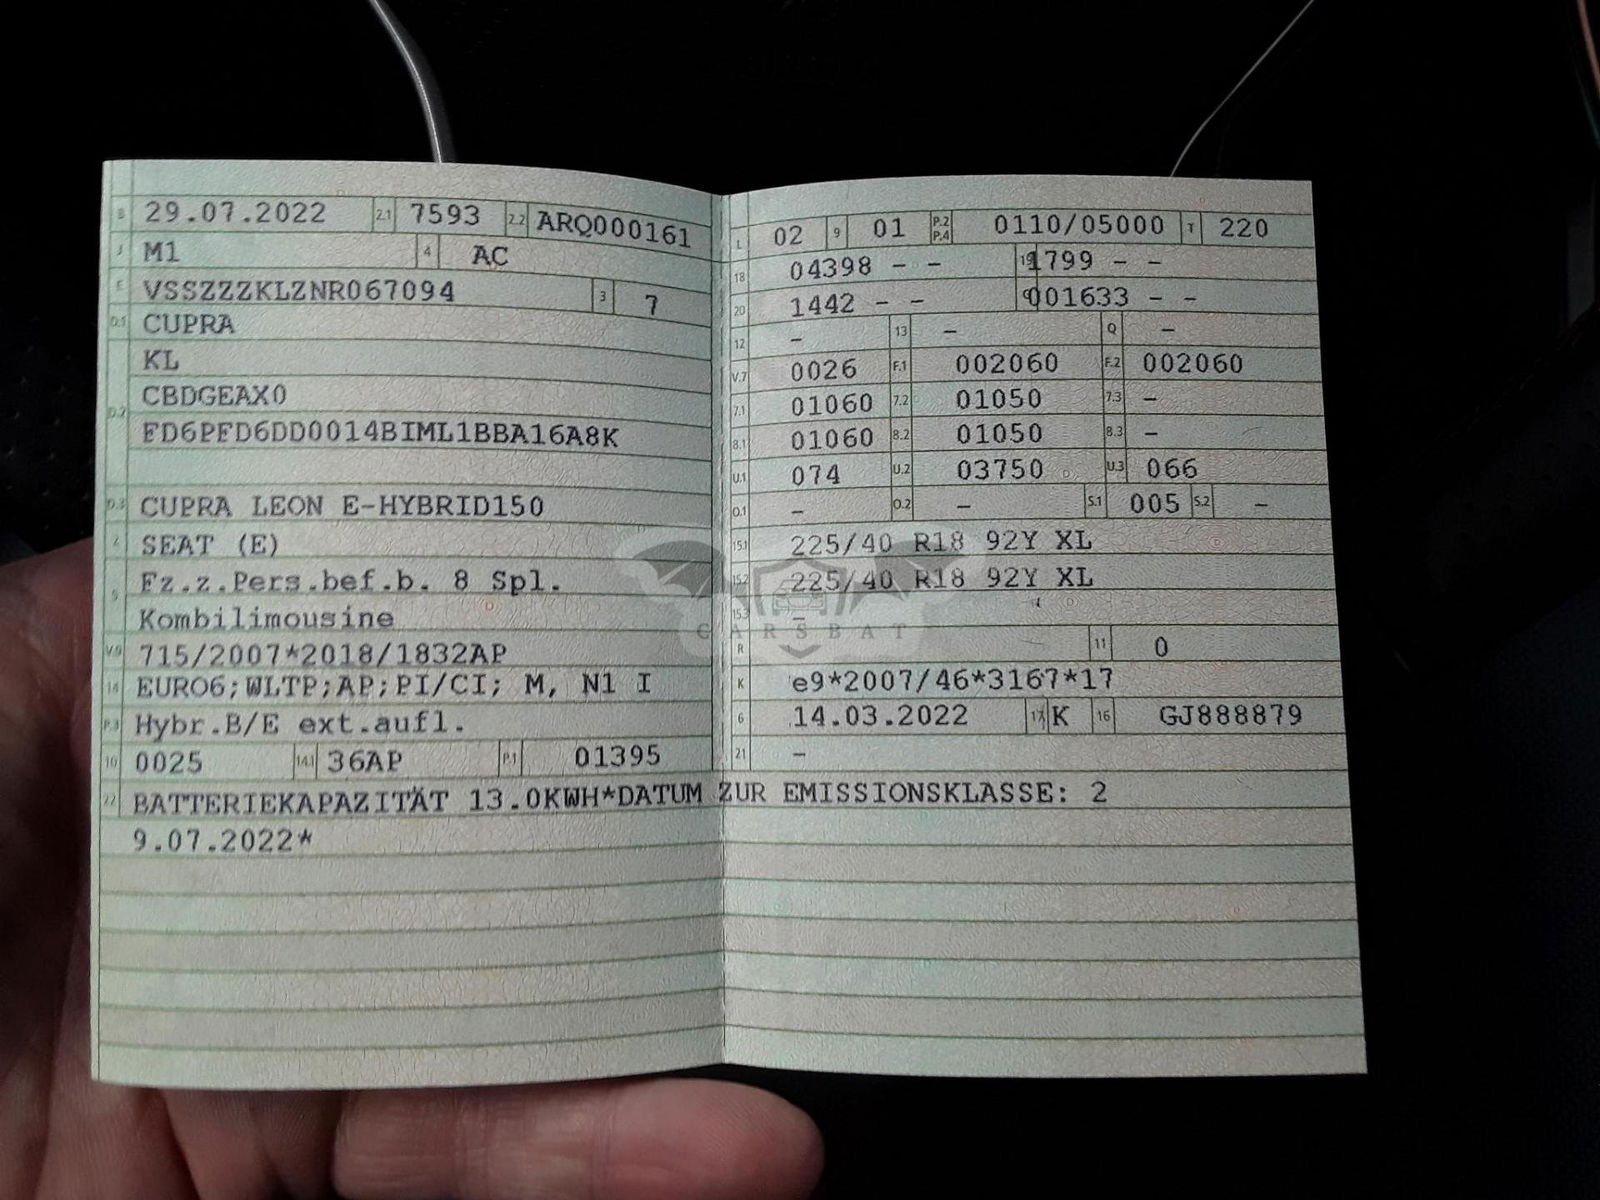 B 29.07.2022 2.1 7593 2.2 ARQ000161
J M1 4 AC
E VSSZZZKLZNR067094 3 7
D.1 CUPRA
KL
D.2 CBDGEAX0
FD6PFD6DD0014BIML1BBA16A8K
D.3 CUPRA LEON E-HYBRID150
2 SEAT (E)
5 Fz.z.Pers.bef.b. 8 Spl.
Kombilimousine
V.9 715/2007*2018/1832AP
14 EURO6;WLTP;AP;PI/CI; M, N1 I
P.3 Hybr.B/E ext.aufl.
10 0025 14.1 36AP P.1 01395
L 02 9 01 P.2 P.4 0110/05000 T 220
18 04398 - - 19 1799 - -
20 1442 - - G 001633 - -
12 - 13 - Q -
V.7 0026 F.1 002060 F.2 002060
7.1 01060 7.2 01050 7.3 -
8.1 01060 8.2 01050 8.3 -
U.1 074 U.2 03750 U.3 066
O.1 - O.2 - S.1 005 S.2 -
15.1 225/40 R18 92Y XL
15.2 225/40 R18 92Y XL
15.3 -
CARSBAT
R 11 0
K e9*2007/46*3167*17
6 14.03.2022 17 K 16 GJ888879
21 -
22 BATTERIEKAPAZITÄT 13.0KWH*DATUM ZUR EMISSIONSKLASSE: 2
9.07.2022*